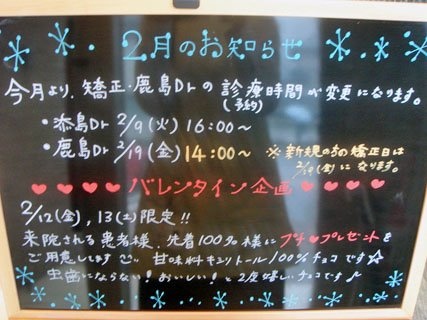 2月のお知らせ
今月より、矯正・鹿島Drの診療時間が変更になります。
(予約)
・添島Dr 2/9(火) 16:00～
・鹿島Dr 2/19(金) 14:00～ ※新規の方の矯正日は
2/19(金)になります。
♥♥♥♥バレンタイン企画♥♥♥♥
2/12(金),13(土)限定!!
来院される患者様、先着100名様にプチ♥プレゼントを
ご用意します 甘味料キシリトール100%チョコです☆
虫歯にならない!おいしい!と2度嬉しいチョコです♪